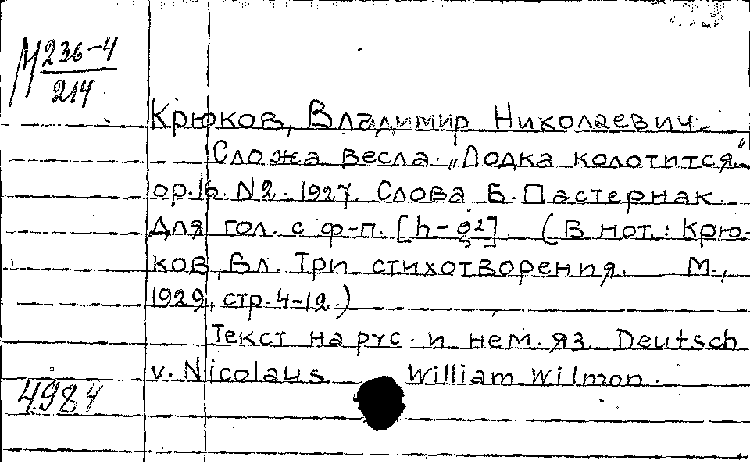 М 236-4
214
Крюков, Владимир Николаевич.
Сложа весла. „Лодка колотится"
ор.16. N2. 1927. Слова Б. Пастернак
Для гол. с ф-п. [h-g²]. (В нот.: Крю-
ков, Вл. Три стихотворения. М.,
1929, стр. 4-12.)
Текст на рус. и нем. яз. Deutsch
v. Nicolaus William Wilmon.
4984